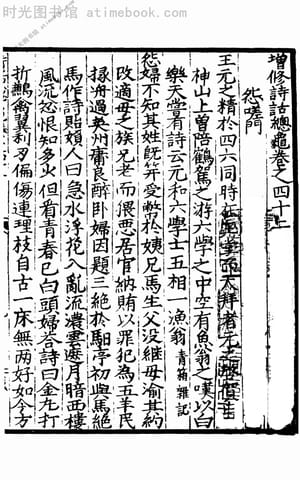 时光图书馆 www.atimebook.com
增修詩話總龜卷之四十上
怨嗟門
王元之精於四六同時 大拜者元之
神山上曾陪鶴駕之游六學之中空有魚翁之嘆以白
樂天嘗有詩云元和六學士五相一漁翁青箱雜記
怨婦不知其姓旣笄受幣於姨兄馬生父没繼母渝其約
改適母之族兄老而猥悪居官納賄以罪犯為五羊民
掾洲過英州庸良醉卧婦因題三絶於馹亭初與馬絶
馬作詩貽頗人曰急水浮花入亂流濃雲遮月暗西樓
風流怨恨知多火但看青春已白頭婦荅詩曰金丸打
折鶼禽翼刃偏傷連理枝自古一床無两好如今方